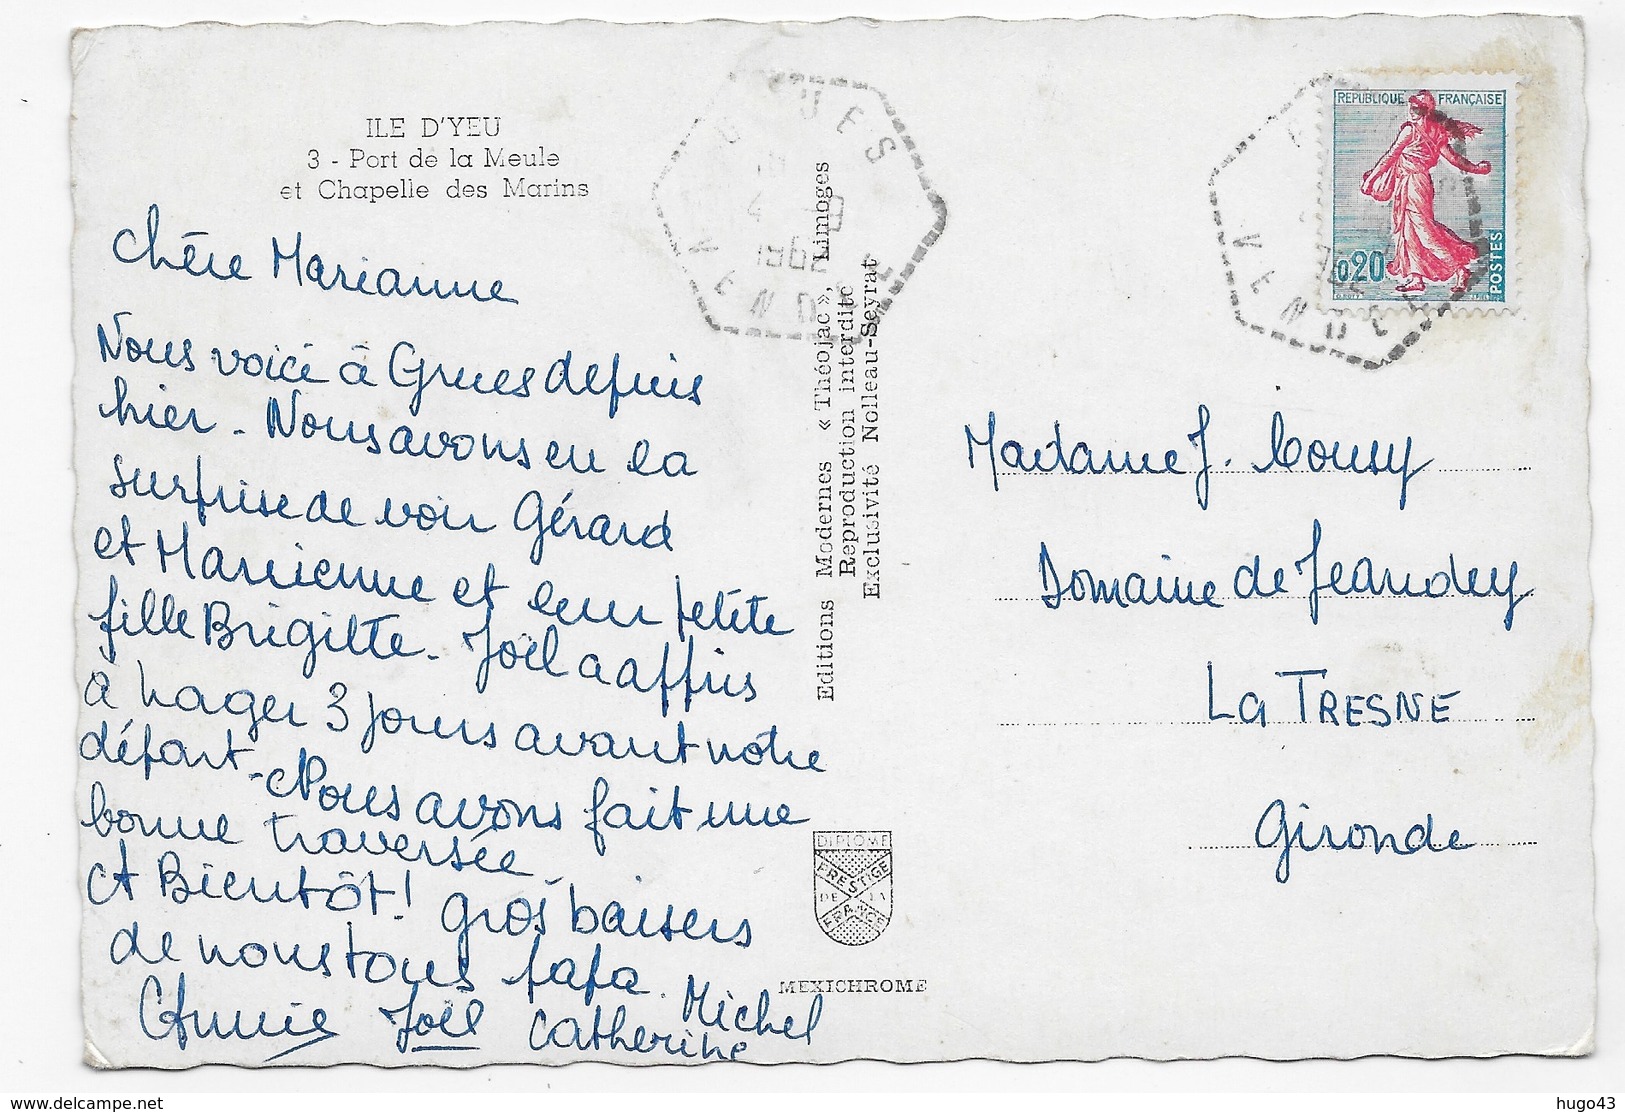 ILE D'YEU
3 - Port de la Meule
et Chapelle des Marins
Chère Marianne
Nous voici à Grues depuis
hier. Nous avons eu la
surprise de voir Gérard
et Maricienne et leur petite
fille Brigitte. Joël a appris
à nager 3 jours avant notre
départ. Nous avons fait une
bonne traversée.
A Bientôt! gros baisers
de nous tous papa. Michel
Annie Joël Catherine
Editions Modernes « Théojac », Limoges
Reproduction interdite
Exclusivité Nolleau-Seyrat
DIPLOME
PRESTIGE
DE LA
FRANCE
MEXICHROME
GRUES
4 - 9
1962
VENDÉE
REPUBLIQUE FRANÇAISE
0,20
POSTES
VENDÉE
Madame J. Cousy
Domaine de Jeandey
LA TRESNE
Gironde
delcampe.net
hugo43